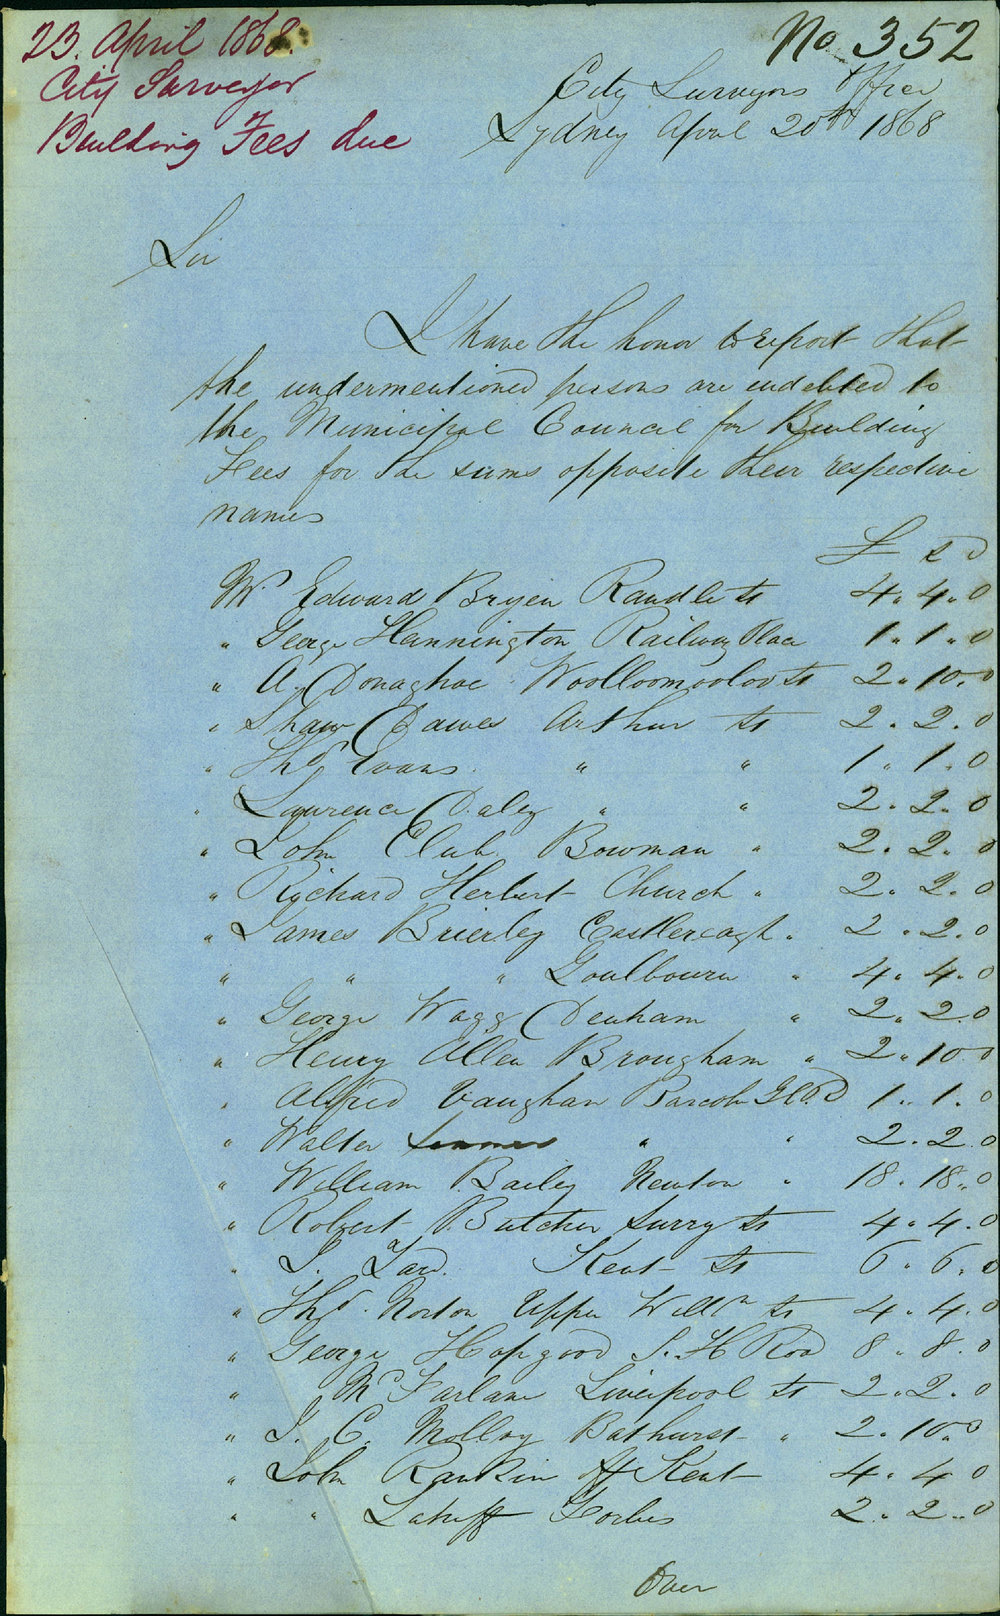 23. April 1868.
City Surveyor
Building Fees due
No 352
City Surveyors Office
Sydney April 20th 1868
Sir
I have the honor to report that
the undermentioned persons are indebted to
the Municipal Council for Building
Fees for the sums opposite their respective
names
£ s d
Mr Edward Bryen Randle St 4. 4. 0
" George Hannington Railway Place 1. 1. 0
" A. Donaghoe Woolloomooloo St 2. 10. 0
" Shaw Dawes Arthur St 2. 2. 0
" Thos Evans " " 1. 1. 0
" Laurence Daley " " 2. 2. 0
" John Bowman " 2. 2. 0
" Richard Herbert Church " 2. 2. 0
" James Brierley Castlereagh " 2. 2. 0
" " " Goulbourn " 4. 4. 0
" George Wagg Denham " 2. 2. 0
" Henry Allen Brougham " 2. 10. 0
" Alfred Vaughan 1. 1. 0
" Walter " " 2. 2. 0
" William Bailey Newton " 18. 18. 0
" Robert Butcher Surry St 4. 4. 0
" J. Kent St 6. 6. 0
" Thos. Norton Upper Willm St 4. 4. 0
" George Hapgood S. H Road 8. 8. 0
" McFarlane Liverpool St 2. 2. 0
" J. C. Molloy Bathurst " 2. 10. 0
" John Rankin off Kent 4. 4. 0
" " Forbes 2. 2. 0
Over